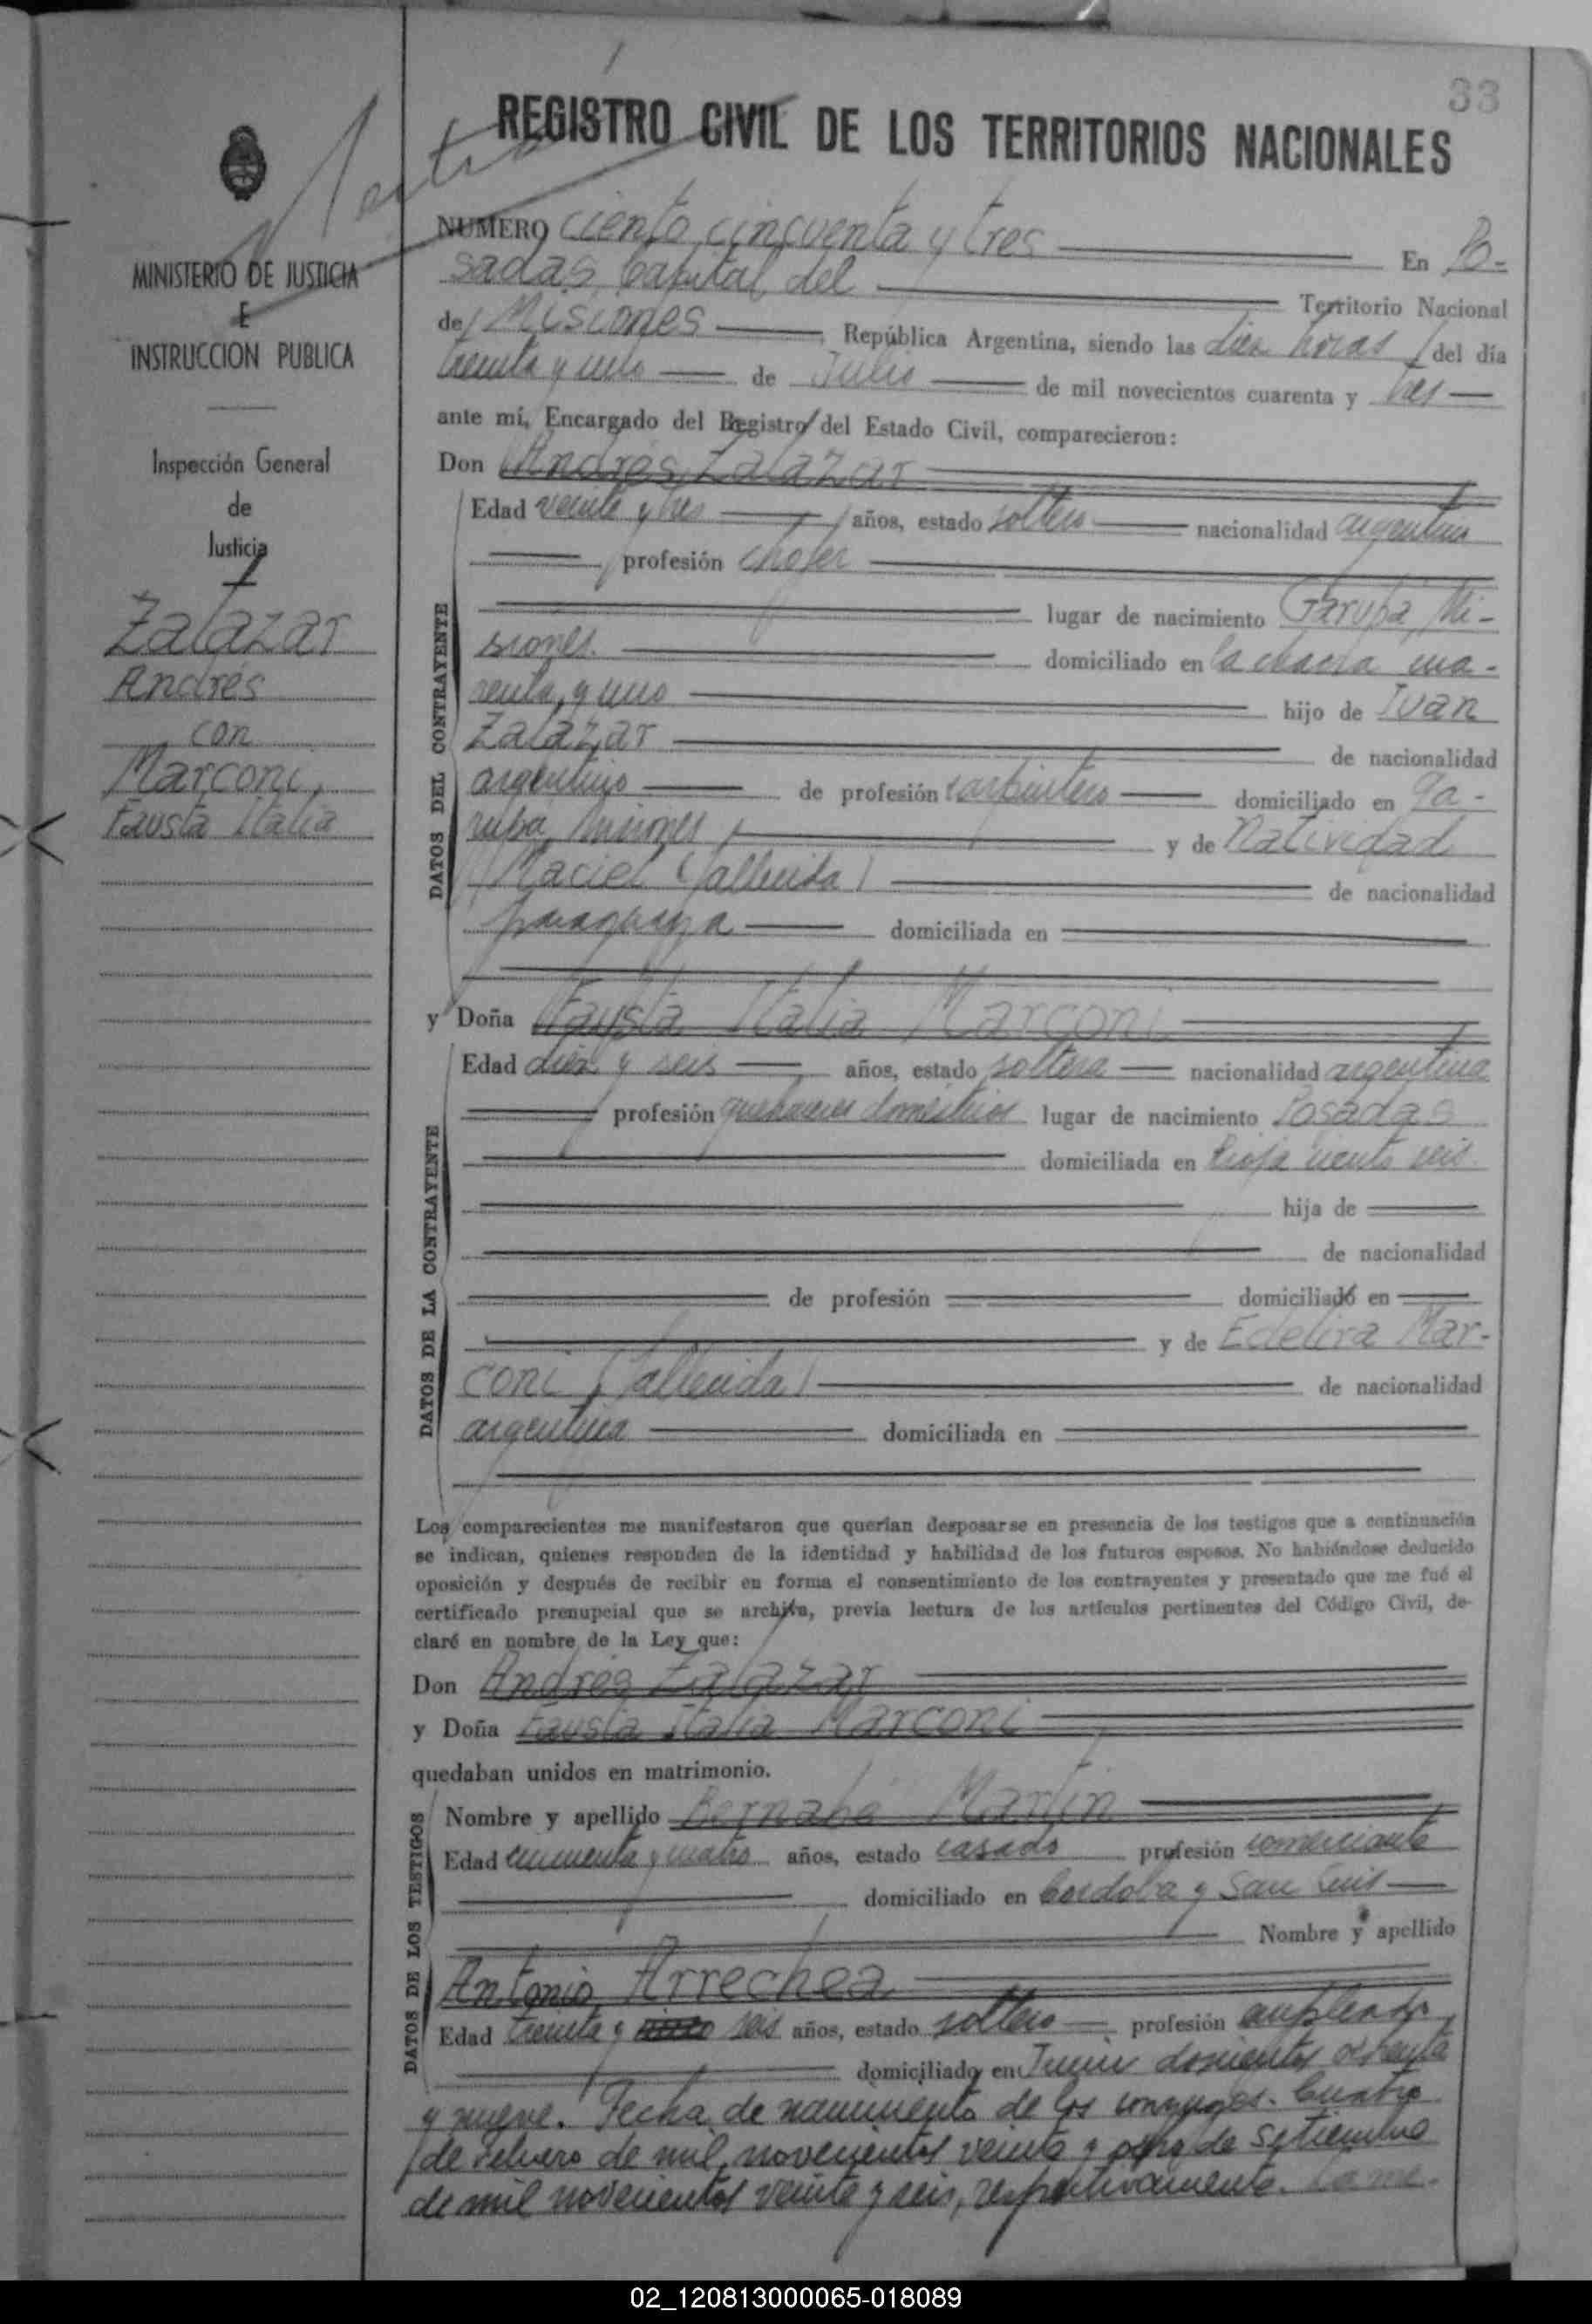 33
REGISTRO CIVIL DE LOS TERRITORIOS NACIONALES
MINISTERIO DE JUSTICIA
E
INSTRUCCION PUBLICA
Inspección General
de
Justicia
Zalazar
Andrés
con
Marconi,
Fausta Italia
NUMERO ciento cincuenta y tres En Po-
sadas, Capital del Territorio Nacional
de Misiones República Argentina, siendo las diez horas del día
treinta y uno de Julio de mil novecientos cuarenta y tres
ante mí, Encargado del Registro del Estado Civil, comparecieron:
Don Andrés Zalazar
DATOS DEL CONTRAYENTE
Edad veinte y tres años, estado soltero nacionalidad argentino
profesión chofer
lugar de nacimiento Garupá, Mi-
siones. domiciliado en la chacra cua-
renta y uno hijo de Ivan
Zalazar de nacionalidad
argentino de profesión carpintero domiciliado en Ga-
rupa, Misiones y de Natividad
Maciel (fallecida) de nacionalidad
paraguaya domiciliada en
y Doña Fausta Italia Marconi
DATOS DE LA CONTRAYENTE
Edad diez y seis años, estado soltera nacionalidad argentina
profesión quehaceres domésticos lugar de nacimiento Posadas
domiciliada en Rioja ciento seis
hija de
de nacionalidad
de profesión domiciliado en
y de Edelira Mar-
coni (fallecida) de nacionalidad
argentina domiciliada en
Los comparecientes me manifestaron que querían desposarse en presencia de los testigos que a continuación
se indican, quienes responden de la identidad y habilidad de los futuros esposos. No habiéndose deducido
oposición y después de recibir en forma el consentimiento de los contrayentes y presentado que me fué el
certificado prenupcial que se archiva, previa lectura de los artículos pertinentes del Código Civil, de-
claré en nombre de la Ley que:
Don Andrés Zalazar
y Doña Fausta Italia Marconi
quedaban unidos en matrimonio.
DATOS DE LOS TESTIGOS
Nombre y apellido Bernabé Martin
Edad cincuenta y cuatro años, estado casado profesión comerciante
domiciliado en Cordoba y San Luis
Nombre y apellido
Antonio Arrechea
Edad treinta y seis años, estado soltero profesión empleado
domiciliado en Junin doscientos ochenta
y nueve. Fecha de nacimiento de los conyuges. Cuatro
de Febrero de mil novecientos veinte y ocho de Setiembre
de mil novecientos veinte y seis, respectivamente. La me-
02_120813000065-018089